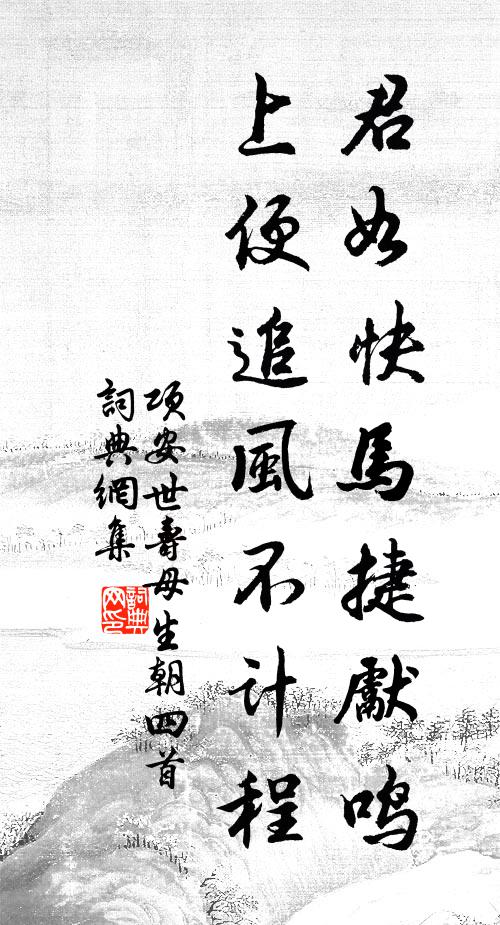 君如快馬捷獻鳴
上便追風不計程
項安世壽母生朝四首
詞典網集
詞典
网印